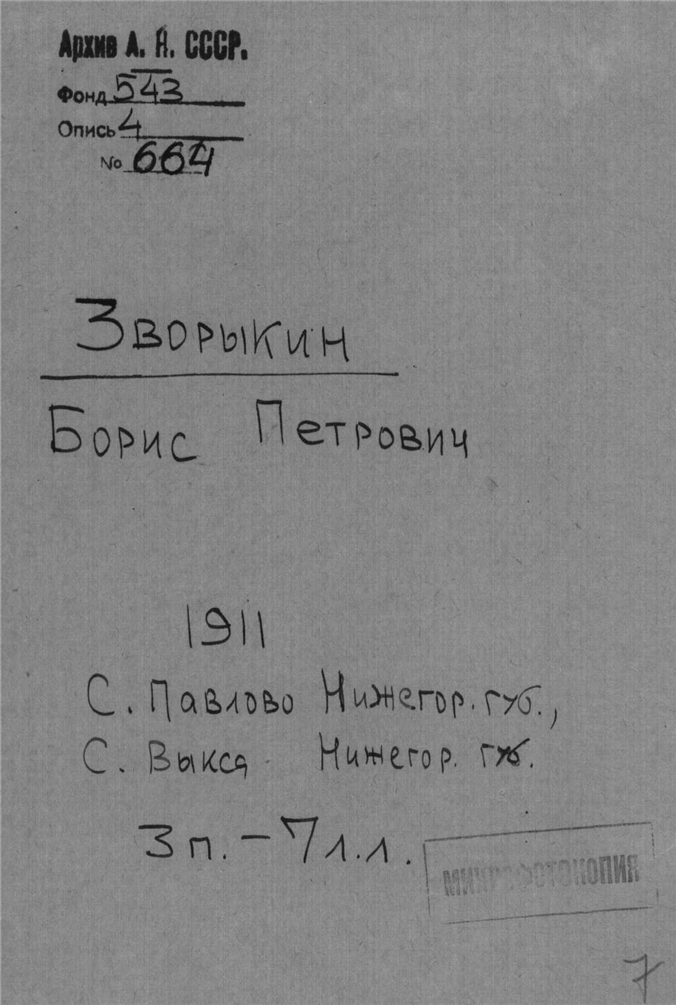 Архив А. Н. СССР.
Фонд 543
Опись 4
No 664
Зворыкин
Борис Петрович
1911
С. Павлово Нижегор. губ.,
С. Выкса Нижегор. губ.
3 п. – 7 л.л.
МИКРОФОТОКОПИЯ
7